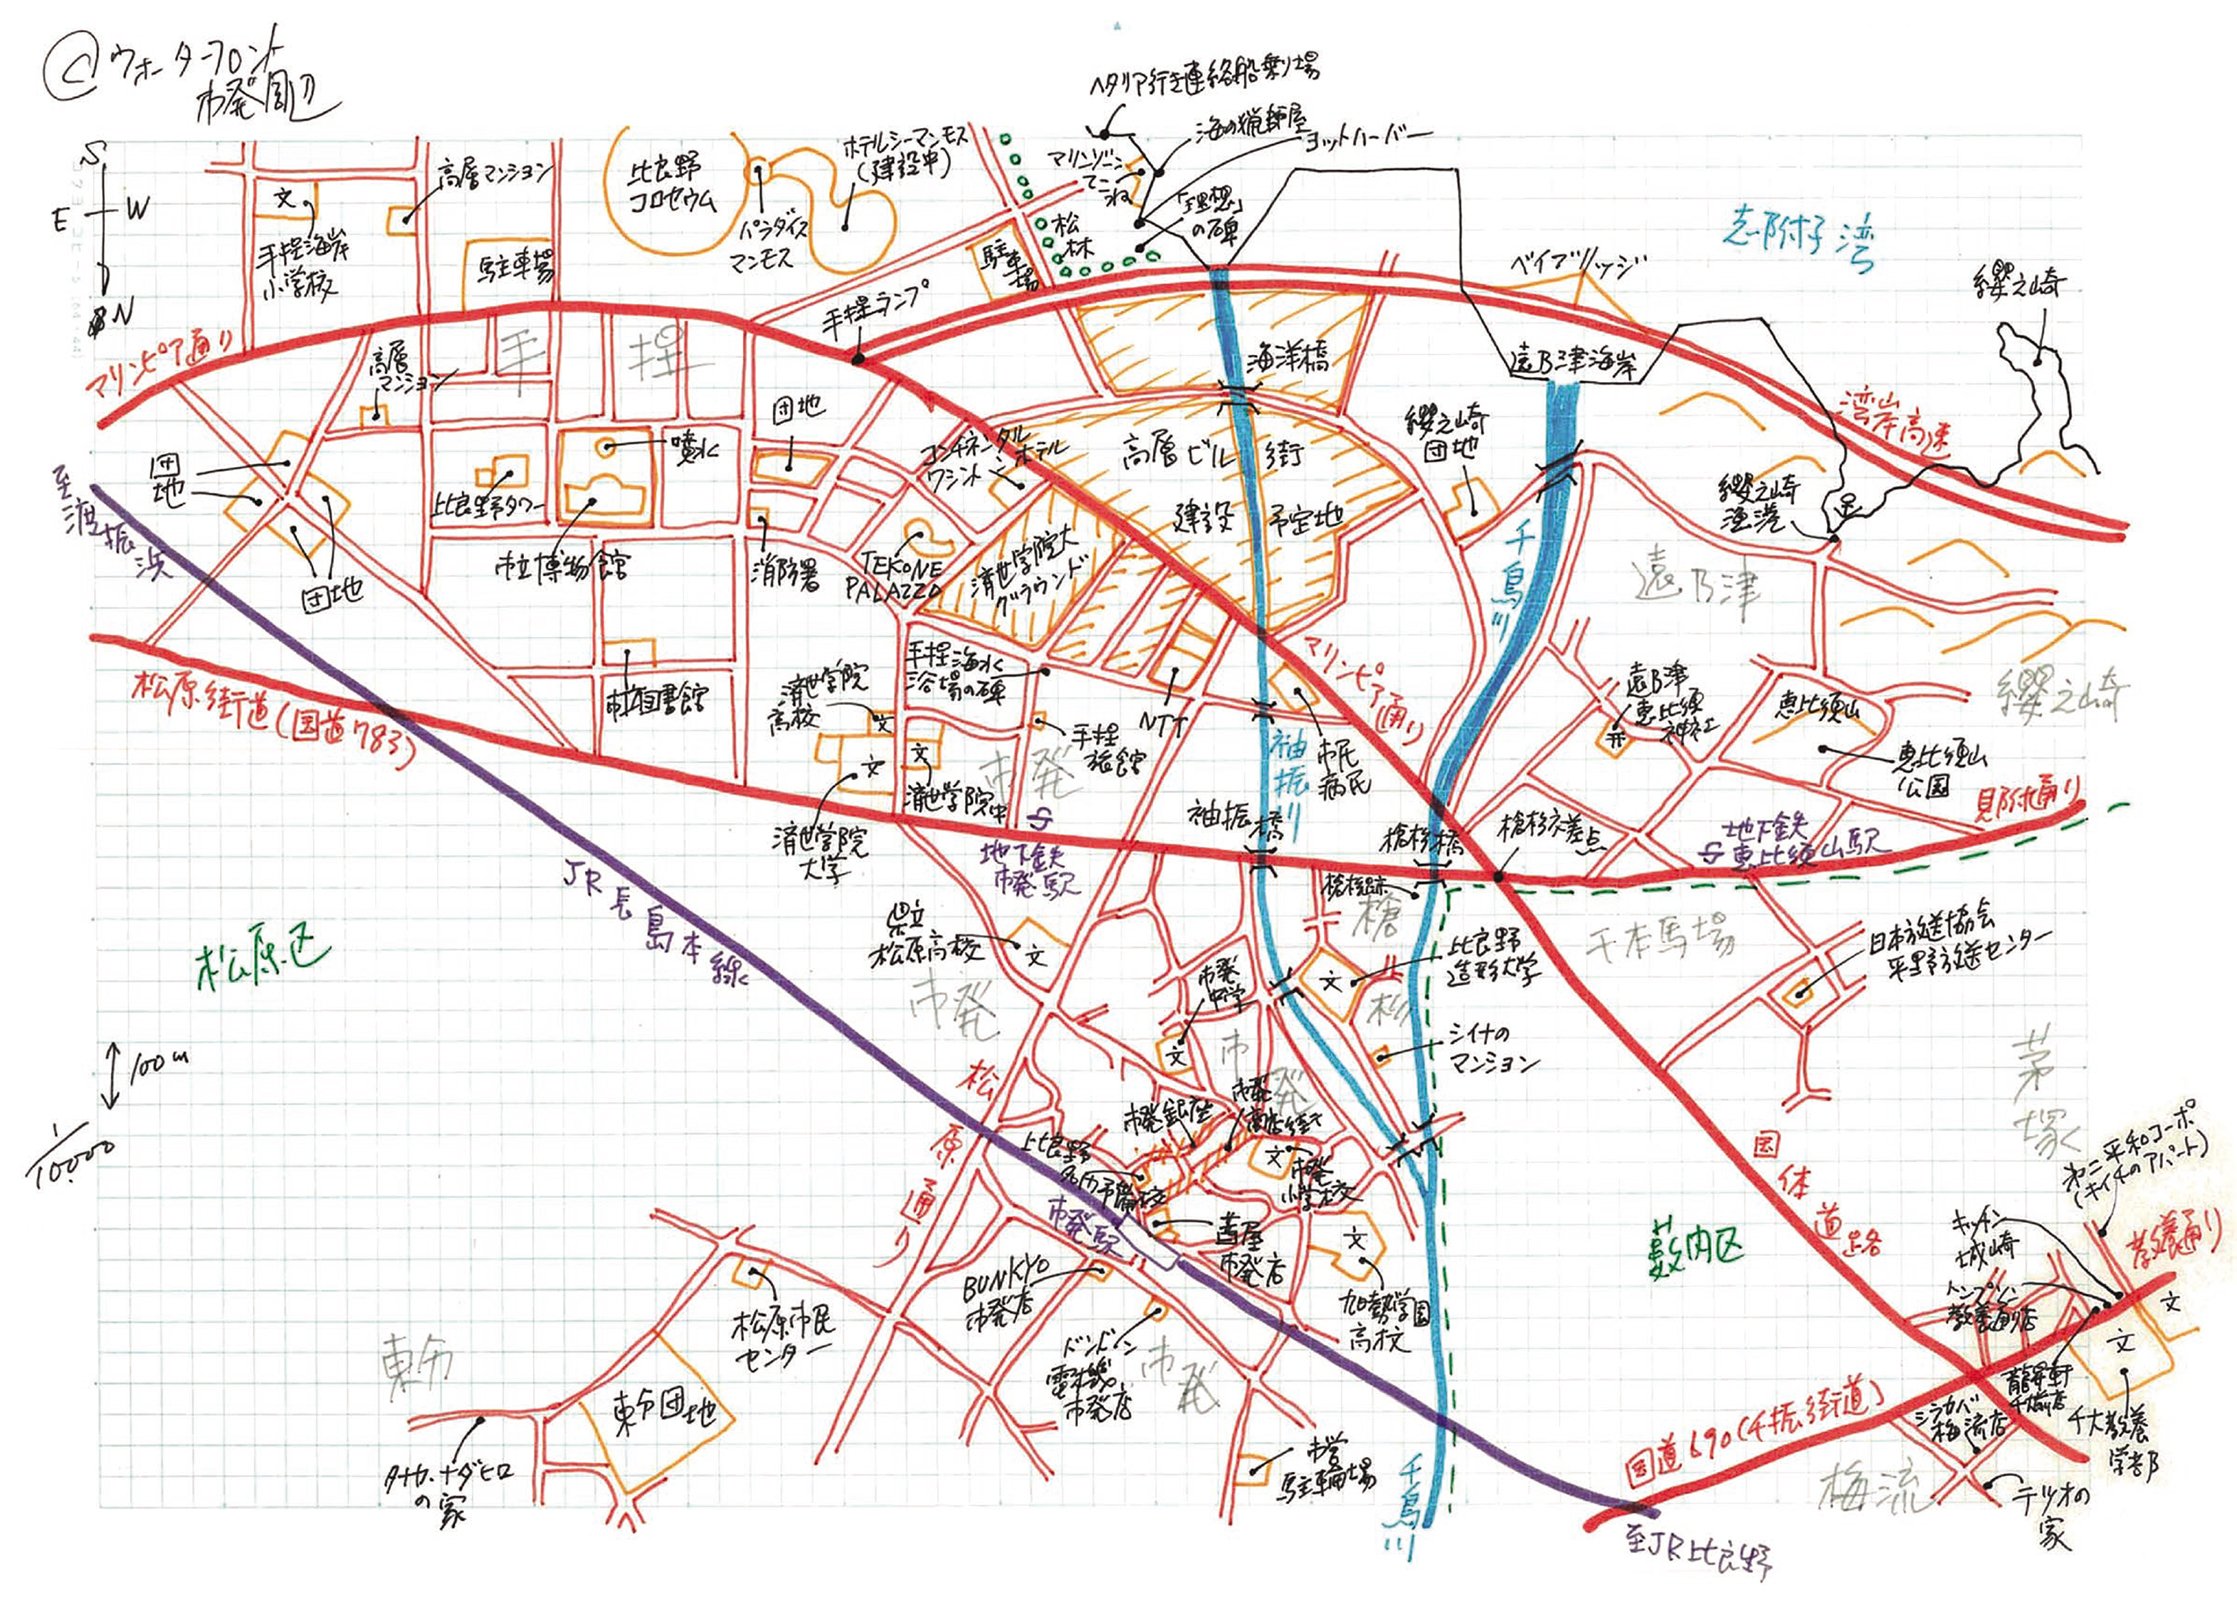 Ⓒウォーターフロント
市発周辺
S
E
W
N
ヘタリア行き連絡船乗り場
海の猟師屋
ヨットハーバー
マリンゾーン
てこね
「理想」
の碑
松林
ホテルシーマンモス
(建設中)
比良野
コロセウム
パラダイス
マンモス
高層マンション
文
手捏海岸
小学校
駐車場
駐車場
手捏ランプ
志附子湾
ベイブリッジ
纓之崎
マリンピア通り
手捏
高層
マンション
海洋橋
遠乃津海岸
湾岸高速
団地
団地
団地
噴水
比良野タワー
市立博物館
消防署
コンチネンタル
ワシントンホテル
TEKONE
PALAZZO
済世学院大
グラウンド
高層ビル街
建設予定地
纓之崎
団地
纓之崎
漁港
千鳥川
遠乃津
至渡振浜
松原街道(国道783)
市立図書館
済世学院
高校
文
文
文
済世学院中
済世学院
大学
手捏海水
浴場の碑
手捏
旅館
NTT
市発
袖振川
市民
病院
マリンピア通り
遠乃津
恵比須
神社
恵比須山
恵比須山
公園
纓之崎
見附通り
地下鉄
恵比須山駅
地下鉄
市発駅
袖振橋
槍杉橋
槍杉交差点
槍杉
JR長島本線
松原区
県立
松原高校
文
市発
市発
中学
文
文
比良野
造形大学
シイナの
マンション
千本馬場
日本放送協会
平野放送センター
茅塚
100m
1/10000
松原通り
市発
市発銀座
市発
商店街
文
市発
小学校
比良野
市発駅
市発店
BUNKYO
市発店
文
加勢学園
高校
ドンドン
電機
市発店
市発
松原市民
センター
東分
東分団地
タカ・ナダヒロ
の家
市営
駐輪場
千鳥川
藪内区
国体道路
第二平和コーポ
(キイチのアパート)
キッチン
城崎
教養通り
トンプソン
教養通り店
文
文
千大教養
学部
シラカバ
梅流店
テツオの
家
梅流
国道690(千振街道)
至JR比良野